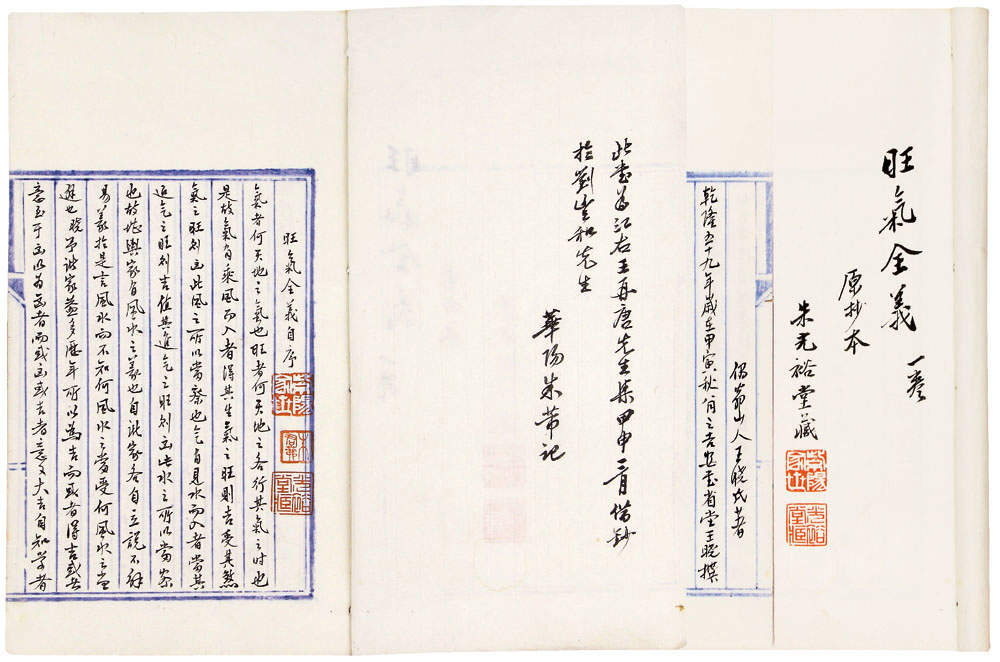 旺氣全義 一卷
原抄本
朱光裕堂藏
山人王曉氏著
乾隆五十九年歲在甲寅秋月之吉 省堂王曉撰
此書為江右王再唐先生集甲申二月借鈔
於劉豐和先生
華陽朱芾記
旺氣全義自序
氣者何天地之氣也旺者何天地之各行其氣之時也
是故氣有乘風而入者得其生氣之旺則吉受其煞
氣之旺則凶此風之所以當察也氣有見水而入者當其
進氣之旺則吉值其退氣之旺則凶此水之所以當察
也故堪輿家有風水之義也自諸家各自立說不解
易義於是言風水而不知何風水之當受何風水之當
避也曉 諸家益多歷年所以為吉而或者得吉或者
至于凶以為凶者而或凶或吉者意又大吉自知學者